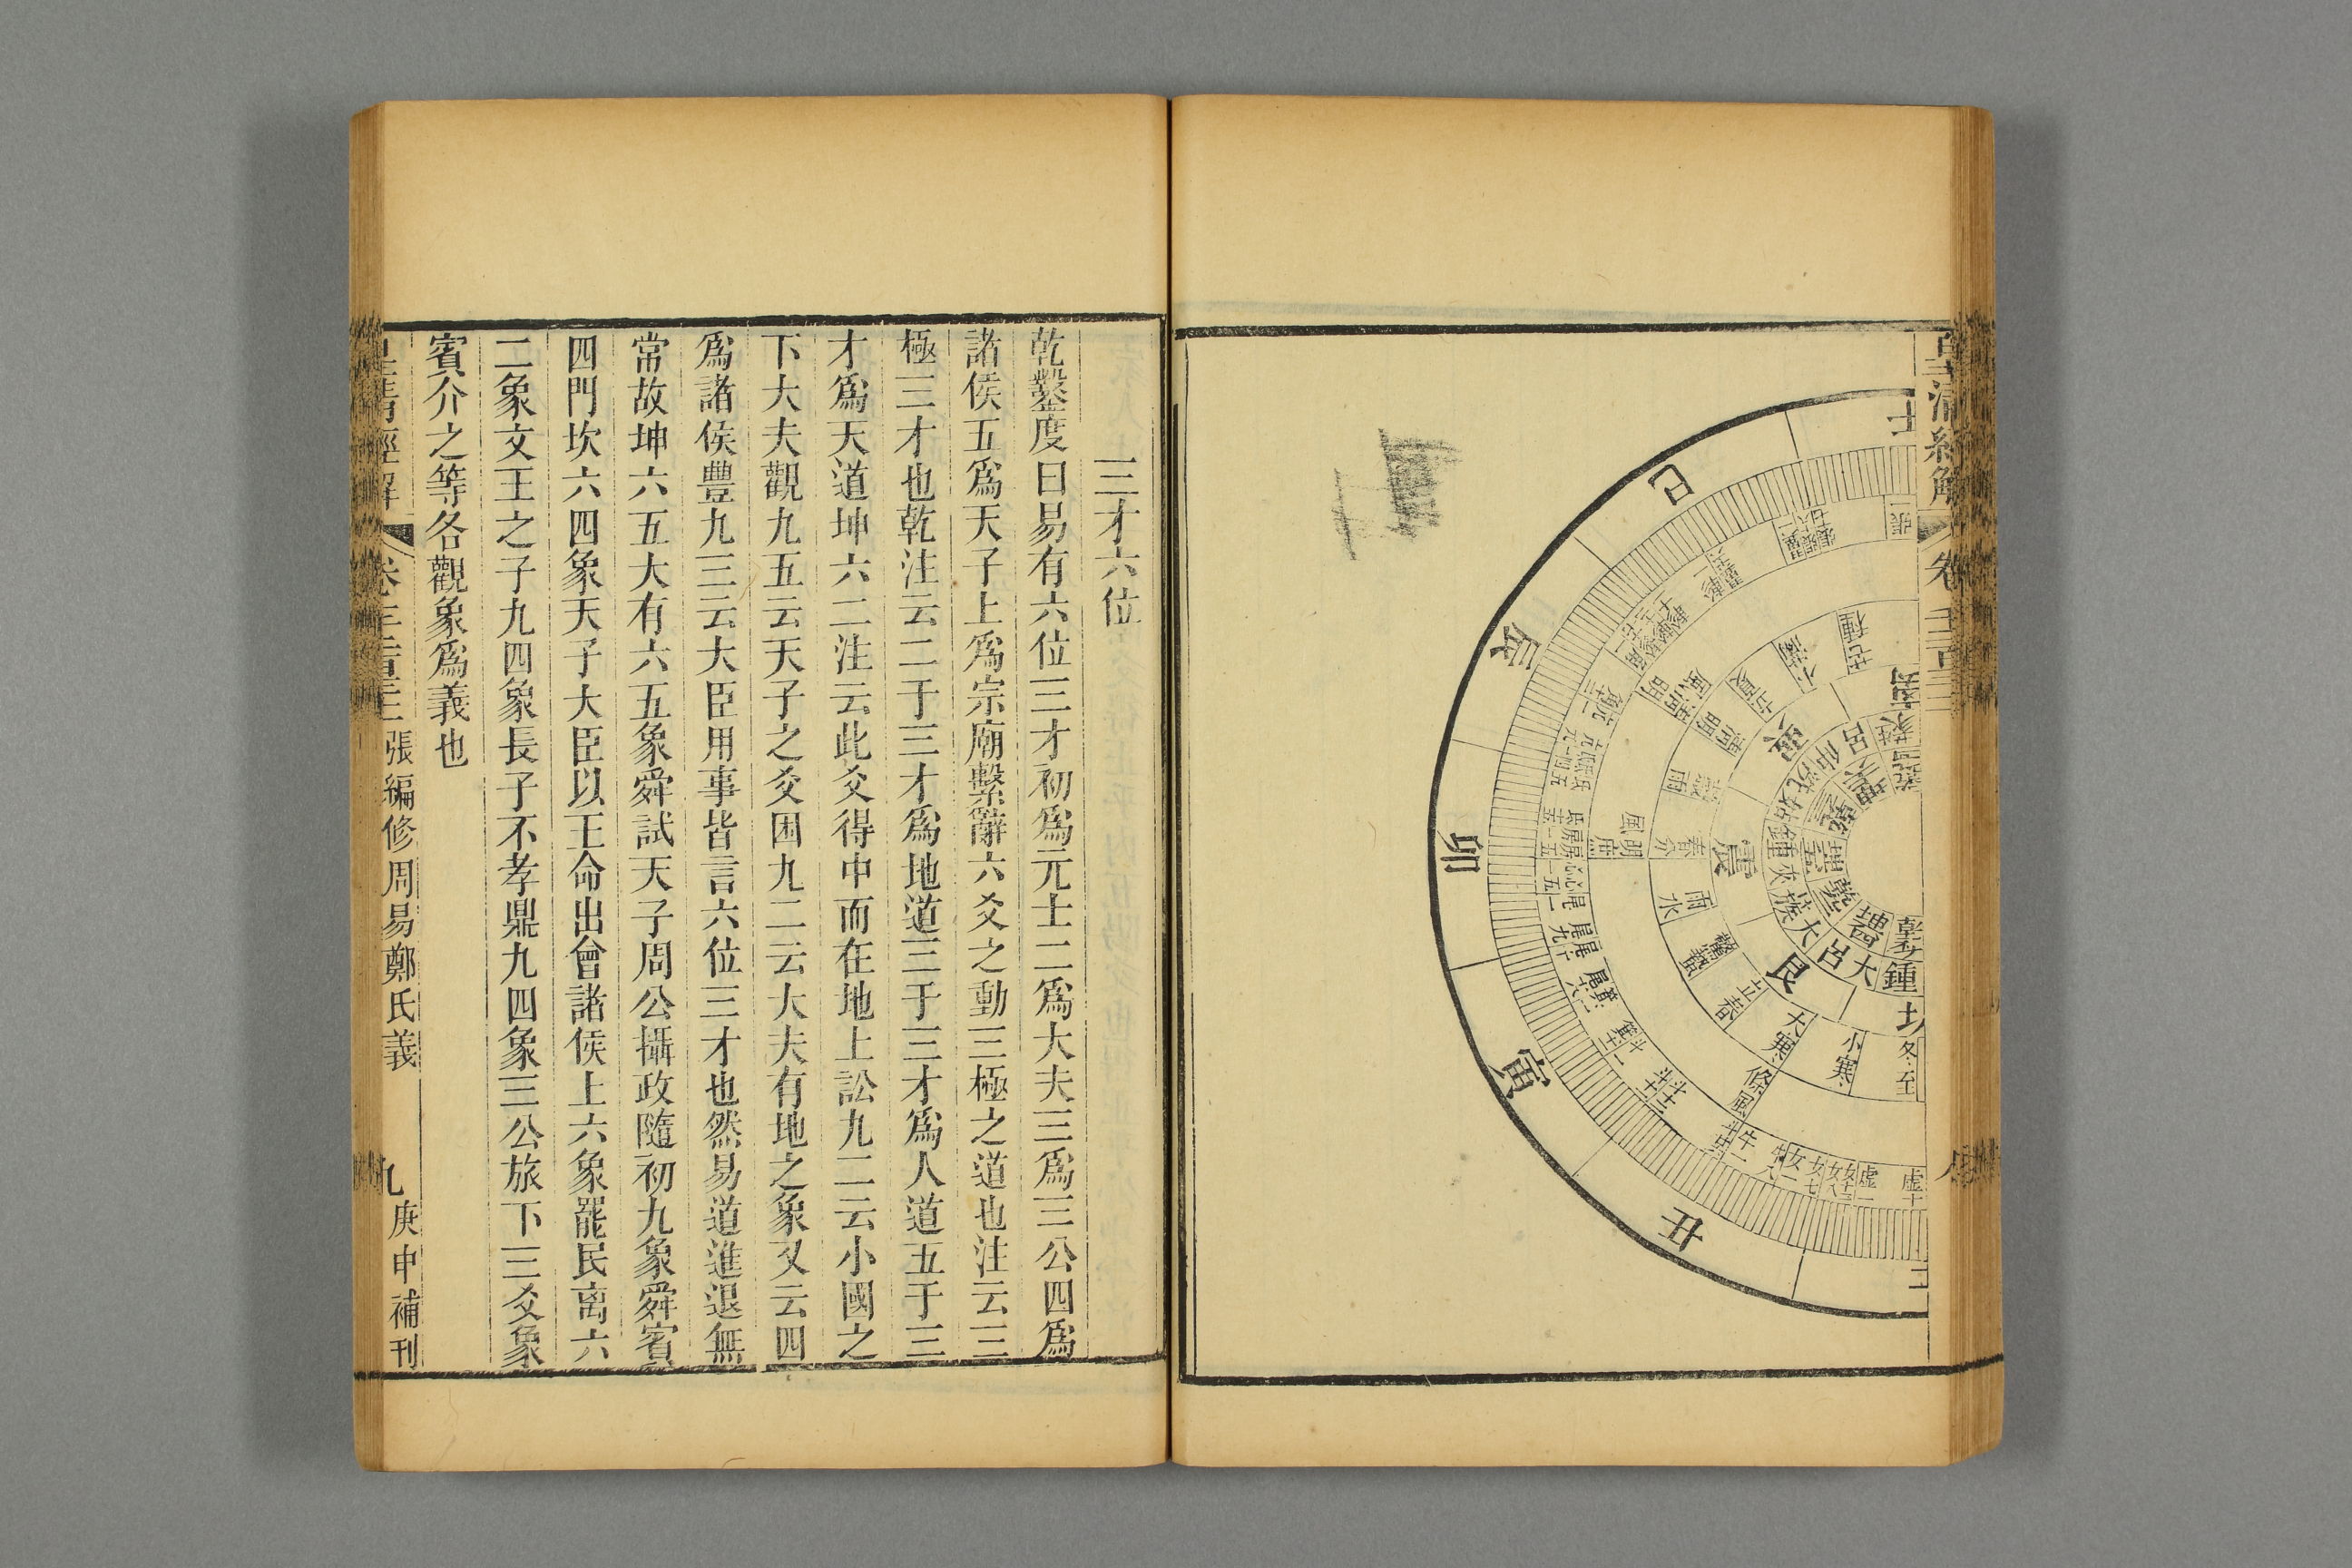 皇清經解
卷
午
巳
辰
卯
寅
丑
子
張一
芒種
小滿
立夏
清明風
清明
穀雨
春分
明庶風
雨水
驚蟄
立春
大寒
條風
小寒
冬至
離
巽
震
艮
坎
蕤
仲呂
姑洗
夾鍾
大蔟
大呂
鍾
斗十二
牛一
牛八
女一
女七
女八
虛一
虛十
三才六位
乾鑿度曰易有六位三才初爲元士二爲大夫三爲三公四爲
諸侯五爲天子上爲宗廟繫辭六爻之動三極之道也注云三
極三才也乾注云二于三才爲地道三于三才爲人道五于三
才爲天道坤六二注云此爻得中而在地上訟九二云小國之
下大夫觀九五云天子之爻困九二云大夫有地之象又云四
爲諸侯豐九三云大臣用事皆言六位三才也然易道進退無
常故坤六五大有六五象舜試天子周公攝政隨初九象舜賓
四門坎六四象天子大臣以王命出會諸侯上六象罷民离六
二象文王之子九四象長子不孝鼎九四象三公旅下三爻象
賓介之等各觀象爲義也
皇清經解
張編修周易鄭氏義
九
庚申補刊